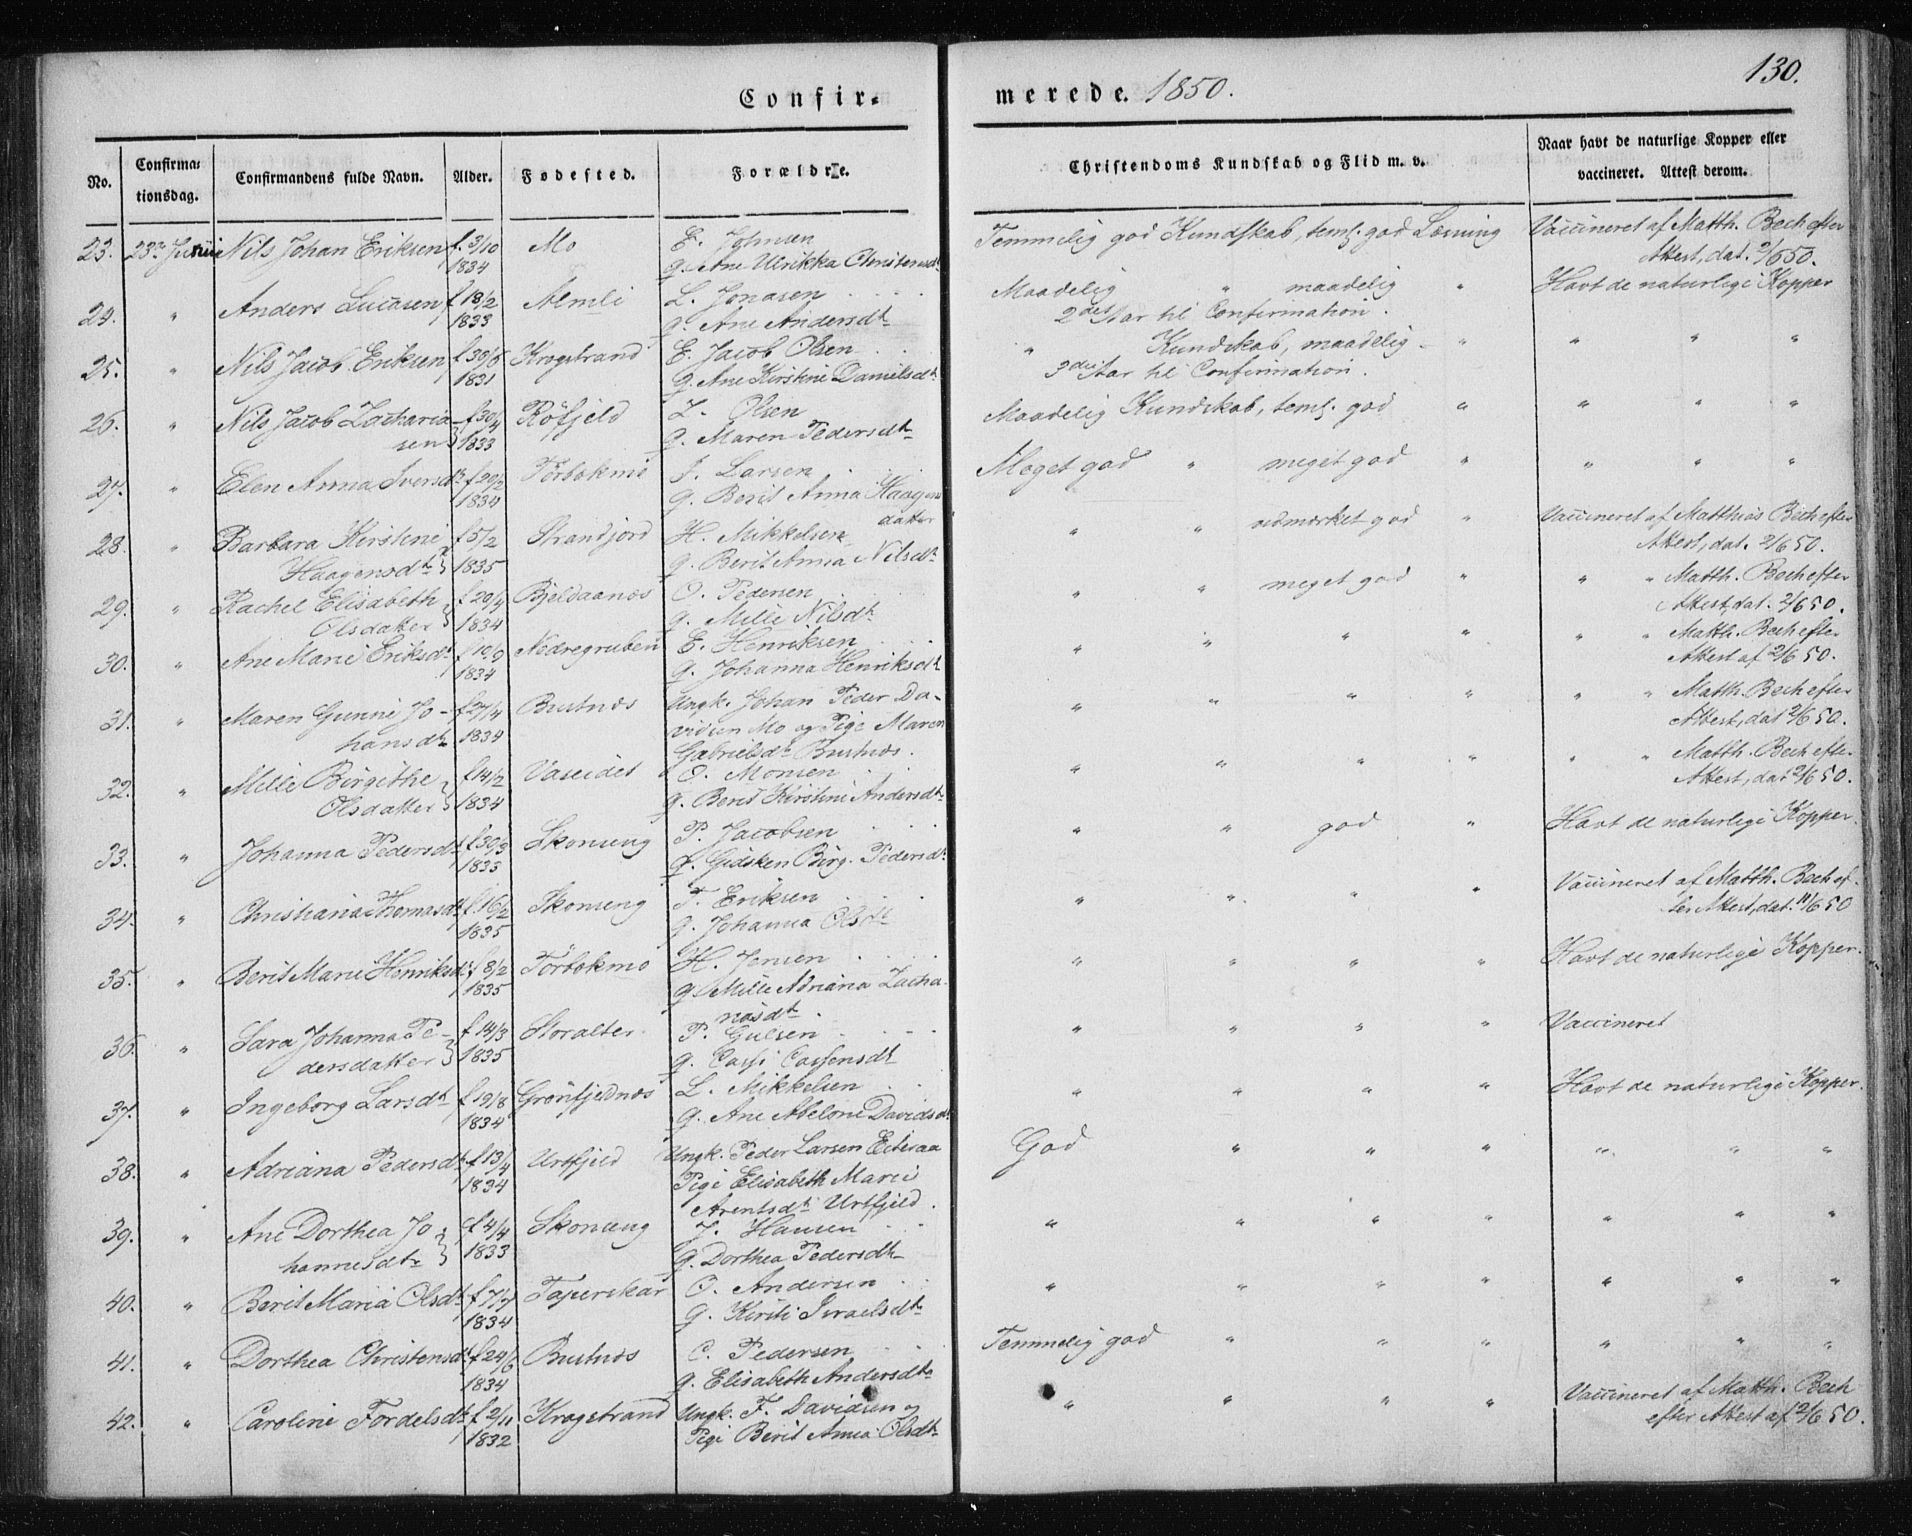 130.
Confir-
merede. 1850.
No.
Confirma-
tionsdag.
Confirmandens fulde Navn.
Alder.
Fødested.
Forældre.
Christendoms Kundskab og Flid m. v.
Naar havt de naturlige Kopper eller
vaccineret. Attest derom.
23. 23de Juni Nils Johan Eriksen f. 3/10 Mo E. Johnsen Temmelig god Kundskab, teml. god Læsning Vaccineret af Matth. Bech efter
1834 g. Ane Ulrikka Christensdt Attest, dat. 2/6 50.
24. " Anders Lucasen f 18/2 Almli L. Jonasen Maadelig " maadelig " Havt de naturlige Kopper
1833 g. Ane Andersdt 2det Aar til Confirmation.
25. " Nils Jacob Eriksen f 30/6 Krogstrand E. Jacob Olsen " Kundskab, maadelig " " " "
1831 g. Ane Kirstine Danielsdt 3die Aar til Confirmation.
26. " Nils Jacob Zacharia- f 30/4 Röfjeld Z. Olsen Maadelig Kundskab, teml. god " " " "
sen 1833 g. Maren Pedersdt
27. " Elen Anna Iversdt f 20/2 Törbekmo I. Larsen Meget god " meget god " " " "
1834 g. Berit Anna Haagens
datter
28. " Barbara Kirstine f 5/2 Strandjord H. Mikkelsen " " udmærket god " Vaccineret af Matthias Bech efter
Haagensdtr 1835 g. Berit Anna Nilsdt Attest, dat. 2/6 50.
29. " Rachel Elisabeth f 29/4 Bjeldaanes O. Pedersen " " meget god " " " Matth. Bech efter
Olsdatter 1834 g. Mille Nilsdt Attest, dat. 2/6 50.
30. " Ane Marie Eriksdt f 10/9 Nedregruben E. Henriksen " " " " " " Matth. Bech efter
1834 g. Johanna Henriksdt Attest af 2/6 50.
31. " Maren Gunni Jo- f 27/4 Bustnes Ungk. Johan Peder Da- " " " " " " Matth. Bech efter
hansdt 1834 vidsen Mo og Pige Maren Attest, dat 2/6 50.
Gabrielsdt Bustnes.
32. " Mille Birgithe f 14/2 Vaseidet O. Monsen " " " " " " Matth. Bech efter
Olsdatter 1834 g. Berit Kirstine Andersdt Attest, dat 2/6 50.
33. " Johanna Pedersdt f 30/3 Skonseng P. Jacobsen " " god " Havt de naturlige Kopper.
1835 g. Gidsken Birg. Pedersdt
34. " Christiana Thomasdt f. 16/2 Skonseng T. Eriksen " " " " Vaccineret af Matth. Bech ef-
1835 g. Johanna Olsdt ter Attest, dat. 11/6 50
35. " Berit Marie Henriksdt f 8/2 Törbekmo H. Jensen " " " " Havt de naturlige Kopper.
1835 g. Mille Adriana Zacha-
riasdt
36. " Sara Johanna Pe- f 14/3 Storalter P. Gulsen " " " " Vaccineret
dersdatter 1835 g. Cassi Cassensdt
37. " Ingeborg Larsdt f. 19/8 Grönfjeldnes L. Mikkelsen " " " " Havt de naturlige Kopper.
1834 g. Ane Abelone Davidsdt
38. " Adriana Pedersdt f 13/4 Urtfjeld Ungk. Peder Larsen Eiteraa God " " " " " "
1834 Pige Elisabeth Marie
Arentsdt Urtfjeld.
39. " Ane Dorthea Jo- f 4/4 Skonseng J. Hansen " " " " " " "
hannesdtr 1833 g. Dorthea Pedersdt
40. " Berit Maria Olsdt f 7/7 Taperskar O. Andersen " " " " " " "
1834 g. Kirsti Israelsdt
41. " Dorthea Christensdt f 24/6 Bustnes C. Pedersen Temmelig god " " " " " "
1834 g. Elisabeth Andersdt
42. " Caroline Fordelsdt f 2/11 Krogstrand Ungk. F. Davidsen og " " " " Vaccineret af Matth. Bech
1832 Pige Berit Anna Olsdt efter Attest af 2/6 50.